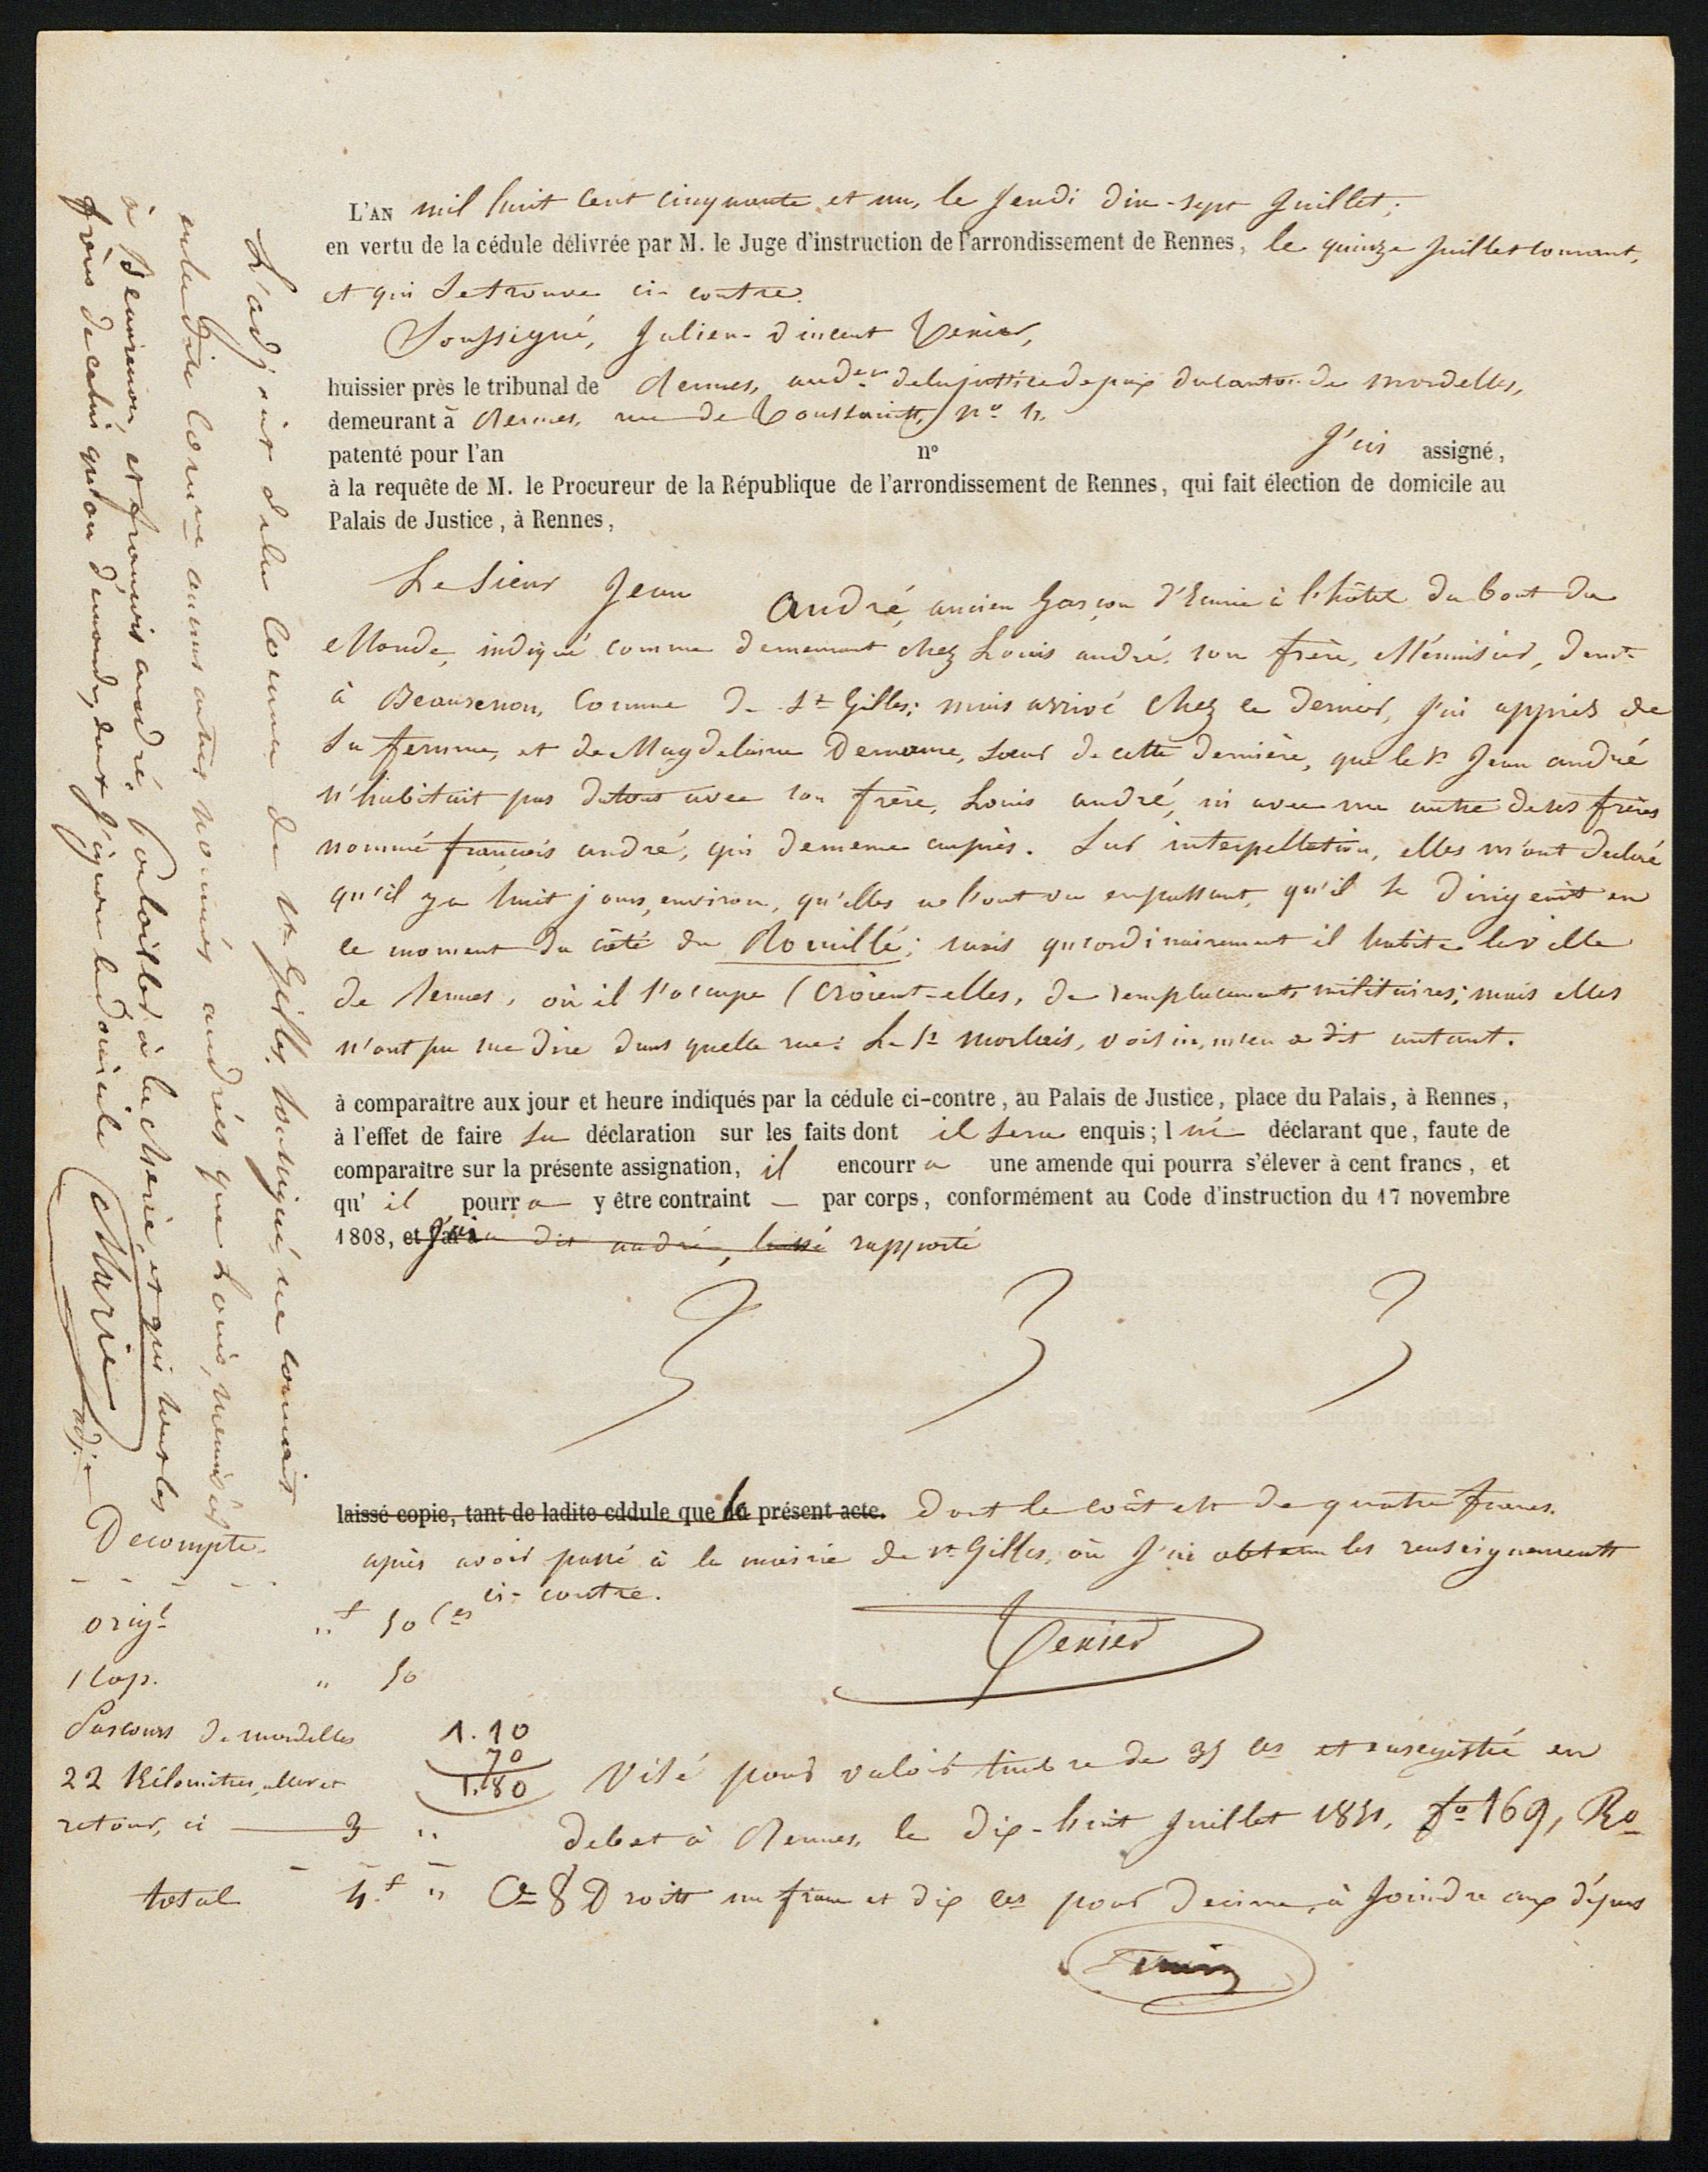 L'AN mil huit cent cinquante et un, le Jeudi dix-sept Juillet;
en vertu de la cédule délivrée par M. le Juge d'instruction de l'arrondissement de Rennes, le quinze Juillet courant,
et qui se trouve ci-contre.
Soussigné, Julien-Vincent
huissier près le tribunal de Rennes, aud.er de la justice de paix du canton de Mordelles,
demeurant à Rennes, rue de Toussaints, n.o 4.
patenté pour l'an n° J'ai assigné,
à la requête de M. le Procureur de la République de l'arrondissement de Rennes, qui fait élection de domicile au
Palais de Justice, à Rennes,
Le Sieur Jean André, ancien Garçon d'Ecurie à l'hôtel du bout du
Monde, indiqué comme demeurant chez Louis andré, son frère, Menuisier, dem.t
à Beaurenon, Commune de St Gilles; mais arrivé chez ce dernier, J'ai appris de
Sa femme, et de Magdelaine Demeure, sœur de cette dernière, que le Sr Jean andré
n'habitait pas du tout avec son frère, Louis andré, ni avec un autre de ses frères
nommé françois andré, qui demeure auprès. Sur interpellation, elles m'ont déclaré
qu'il y a huit jours, environ, qu'elles ne l'ont vu en passant, qu'il se dirigeait en
ce moment du côté du Rouillé; mais qu'ordinairement il habite la ville
de Rennes, où il s'occupe (croient-elles, de remplacements militaires; mais elles
n'ont pu me dire dans quelle rue: Le Sr Morlais, voisin, m'en a dit autant.
à comparaître aux jour et heure indiqués par la cédule ci-contre, au Palais de Justice, place du Palais, à Rennes,
à l'effet de faire sa déclaration sur les faits dont il sera enquis; lui déclarant que, faute de
comparaître sur la présente assignation, il encourra une amende qui pourra s'élever à cent francs, et
qu'il pourra y être contraint — par corps, conformément au Code d'instruction du 17 novembre
1808, et j'ai à dit andré, laissé rapporté
laissé copie, tant de ladite cddule que la présent acte. Dont le coût est de quatre francs.
après avoir passé à la mairie de St Gilles, où J'ai obtenu les renseignements
ci-contre.
L'adjoint de la commune de St Gilles, soussigné, ne connait
en la dite Commune aucuns autres nommés andrés que Louis, menuisier
à Beaurenon, et françois andré, à la Mairie, et qui sont les
frères de celui qu'on demande, dont J'ignore le domicile
Marie
adj.t
Decompte
orig.l " f 50 Ces
1 Cop. " 50
Parcours de Mordelles
22 Kilomètres, aller et
retour, ci — 3 "
total 4.f "
1.10
70
1.80
Visé pour valoir timbre de 35 ces et enregistré en
debet à Rennes, le dix-huit Juillet 1851, fo 169, Ro
Ce 8 Droits un franc et dix ces pour decime, à Joindre aux dépens